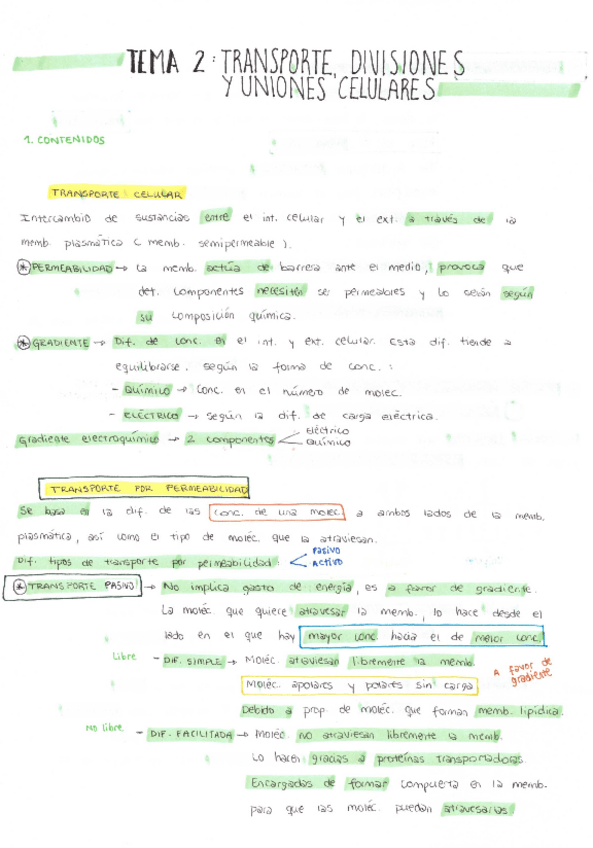 TEMA 2: TRANSPORTE, DIVISIONES
Y UNIONES CELULARES
1. CONTENIDOS
TRANSPORTE CELULAR
Intercambio de sustancias entre el int. celular y el ext. a través de la
memb. plasmática (memb. semipermeable).
* PERMEABILIDAD → La memb. actúa de barrera ante el medio, provoca que
det. componentes necesiten ser permeables y lo serán según
su composición química.
* GRADIENTE → Dif. de conc. en el int. y ext. celular. Esta dif. tiende a
equilibrarse. según la forma de conc. :
- QUÍMICO → Conc. en el número de moléc.
- ELÉCTRICO → según la dif. de carga eléctrica.
Gradiente electroquímico → 2 componentes
Eléctrico
Químico
TRANSPORTE POR PERMEABILIDAD
Se basa en la dif. de las conc. de una moléc. a ambos lados de la memb.
plasmática, así como el tipo de moléc. que la atraviesan.
Dif. tipos de transporte por permeabilidad:
PASIVO
ACTIVO
* TRANSPORTE PASIVO → No implica gasto de energía, es a favor de gradiente.
La moléc. que quiere atravesar la memb., lo hace desde el
lado en el que hay mayor conc. hacia el de menor conc.
Libre - DIF. SIMPLE → Moléc. atraviesan libremente la memb.
Moléc. apolares y polares sin carga
A favor de
gradiente
Debido a prop. de moléc. que forman memb. lipídica.
No libre - DIF. FACILITADA → Moléc. no atraviesan libremente la memb.
Lo hacen gracias a proteínas transportadoras.
Encargadas de formar compuerta en la memb.
para que las moléc. puedan atravesarlas